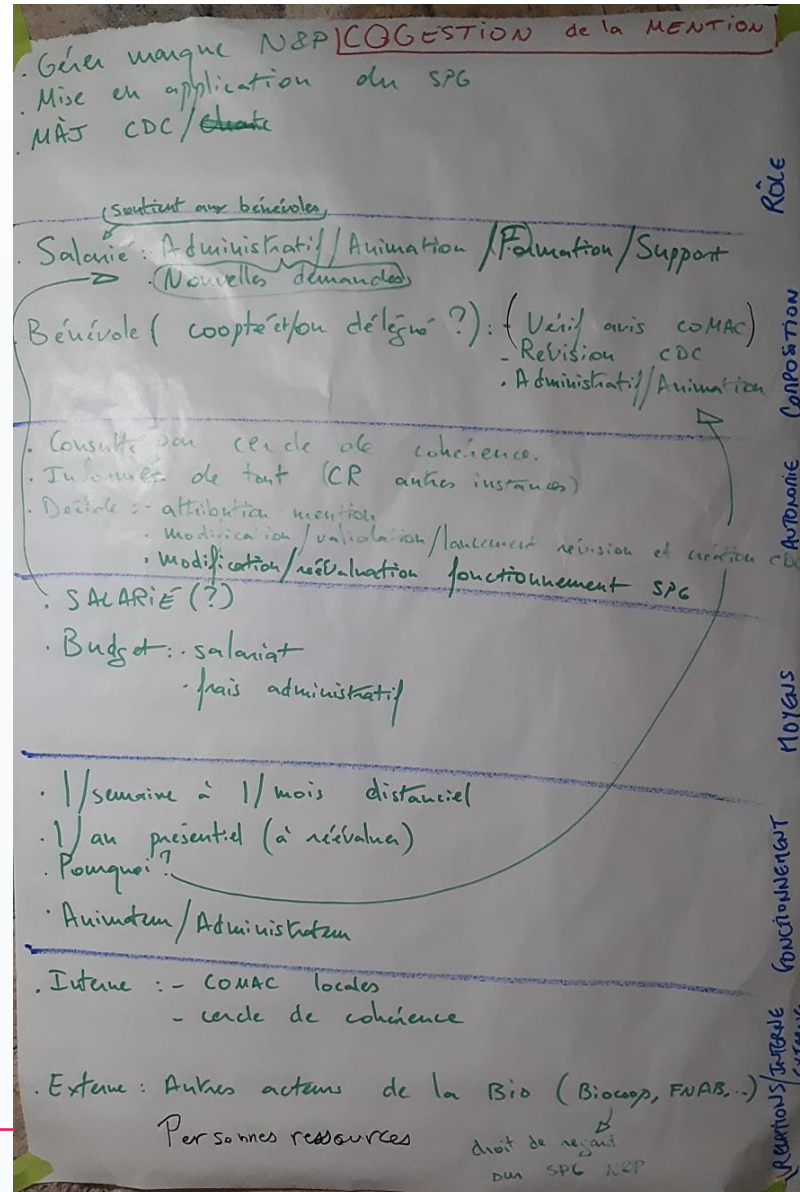 . Gérer marque N&P
COGESTION de la MENTION
. Mise en application du SPG
. MÀJ CDC/
RÔLE
(soutient aux bénévoles)
. Salarié : Administratif/Animation/Formation/Support
. (Nouvelles demandes)
. Bénévole ( coopté et/ou délégué ?) : - (Vérif avis COMAC)
- Révision CDC
. Administratif/Animation
COMPOSITION
. Consulté par cercle de cohérence.
. Informés de tout (CR autres instances)
. Décide : - attribution mention
. modification/validation/lancement révision et création CDC
. modification/réévaluation fonctionnement SPG
AUTONOMIE
. SALARIÉ (?)
. Budget : . salariat
. frais administratif
MOYENS
. 1/semaine à 1/mois distanciel
. 1/an présentiel (à réévaluer)
. Pourquoi ?
. Animateur/Administrateur
FONCTIONNEMENT
. Interne : - COMAC locales
- cercle de cohérence
. Externe : Autres acteurs de la Bio (Biocoop, FNAB,..)
Personnes ressources
droit de regard
sur SPG N&P
RELATIONS/INTERNE
EXTERNE